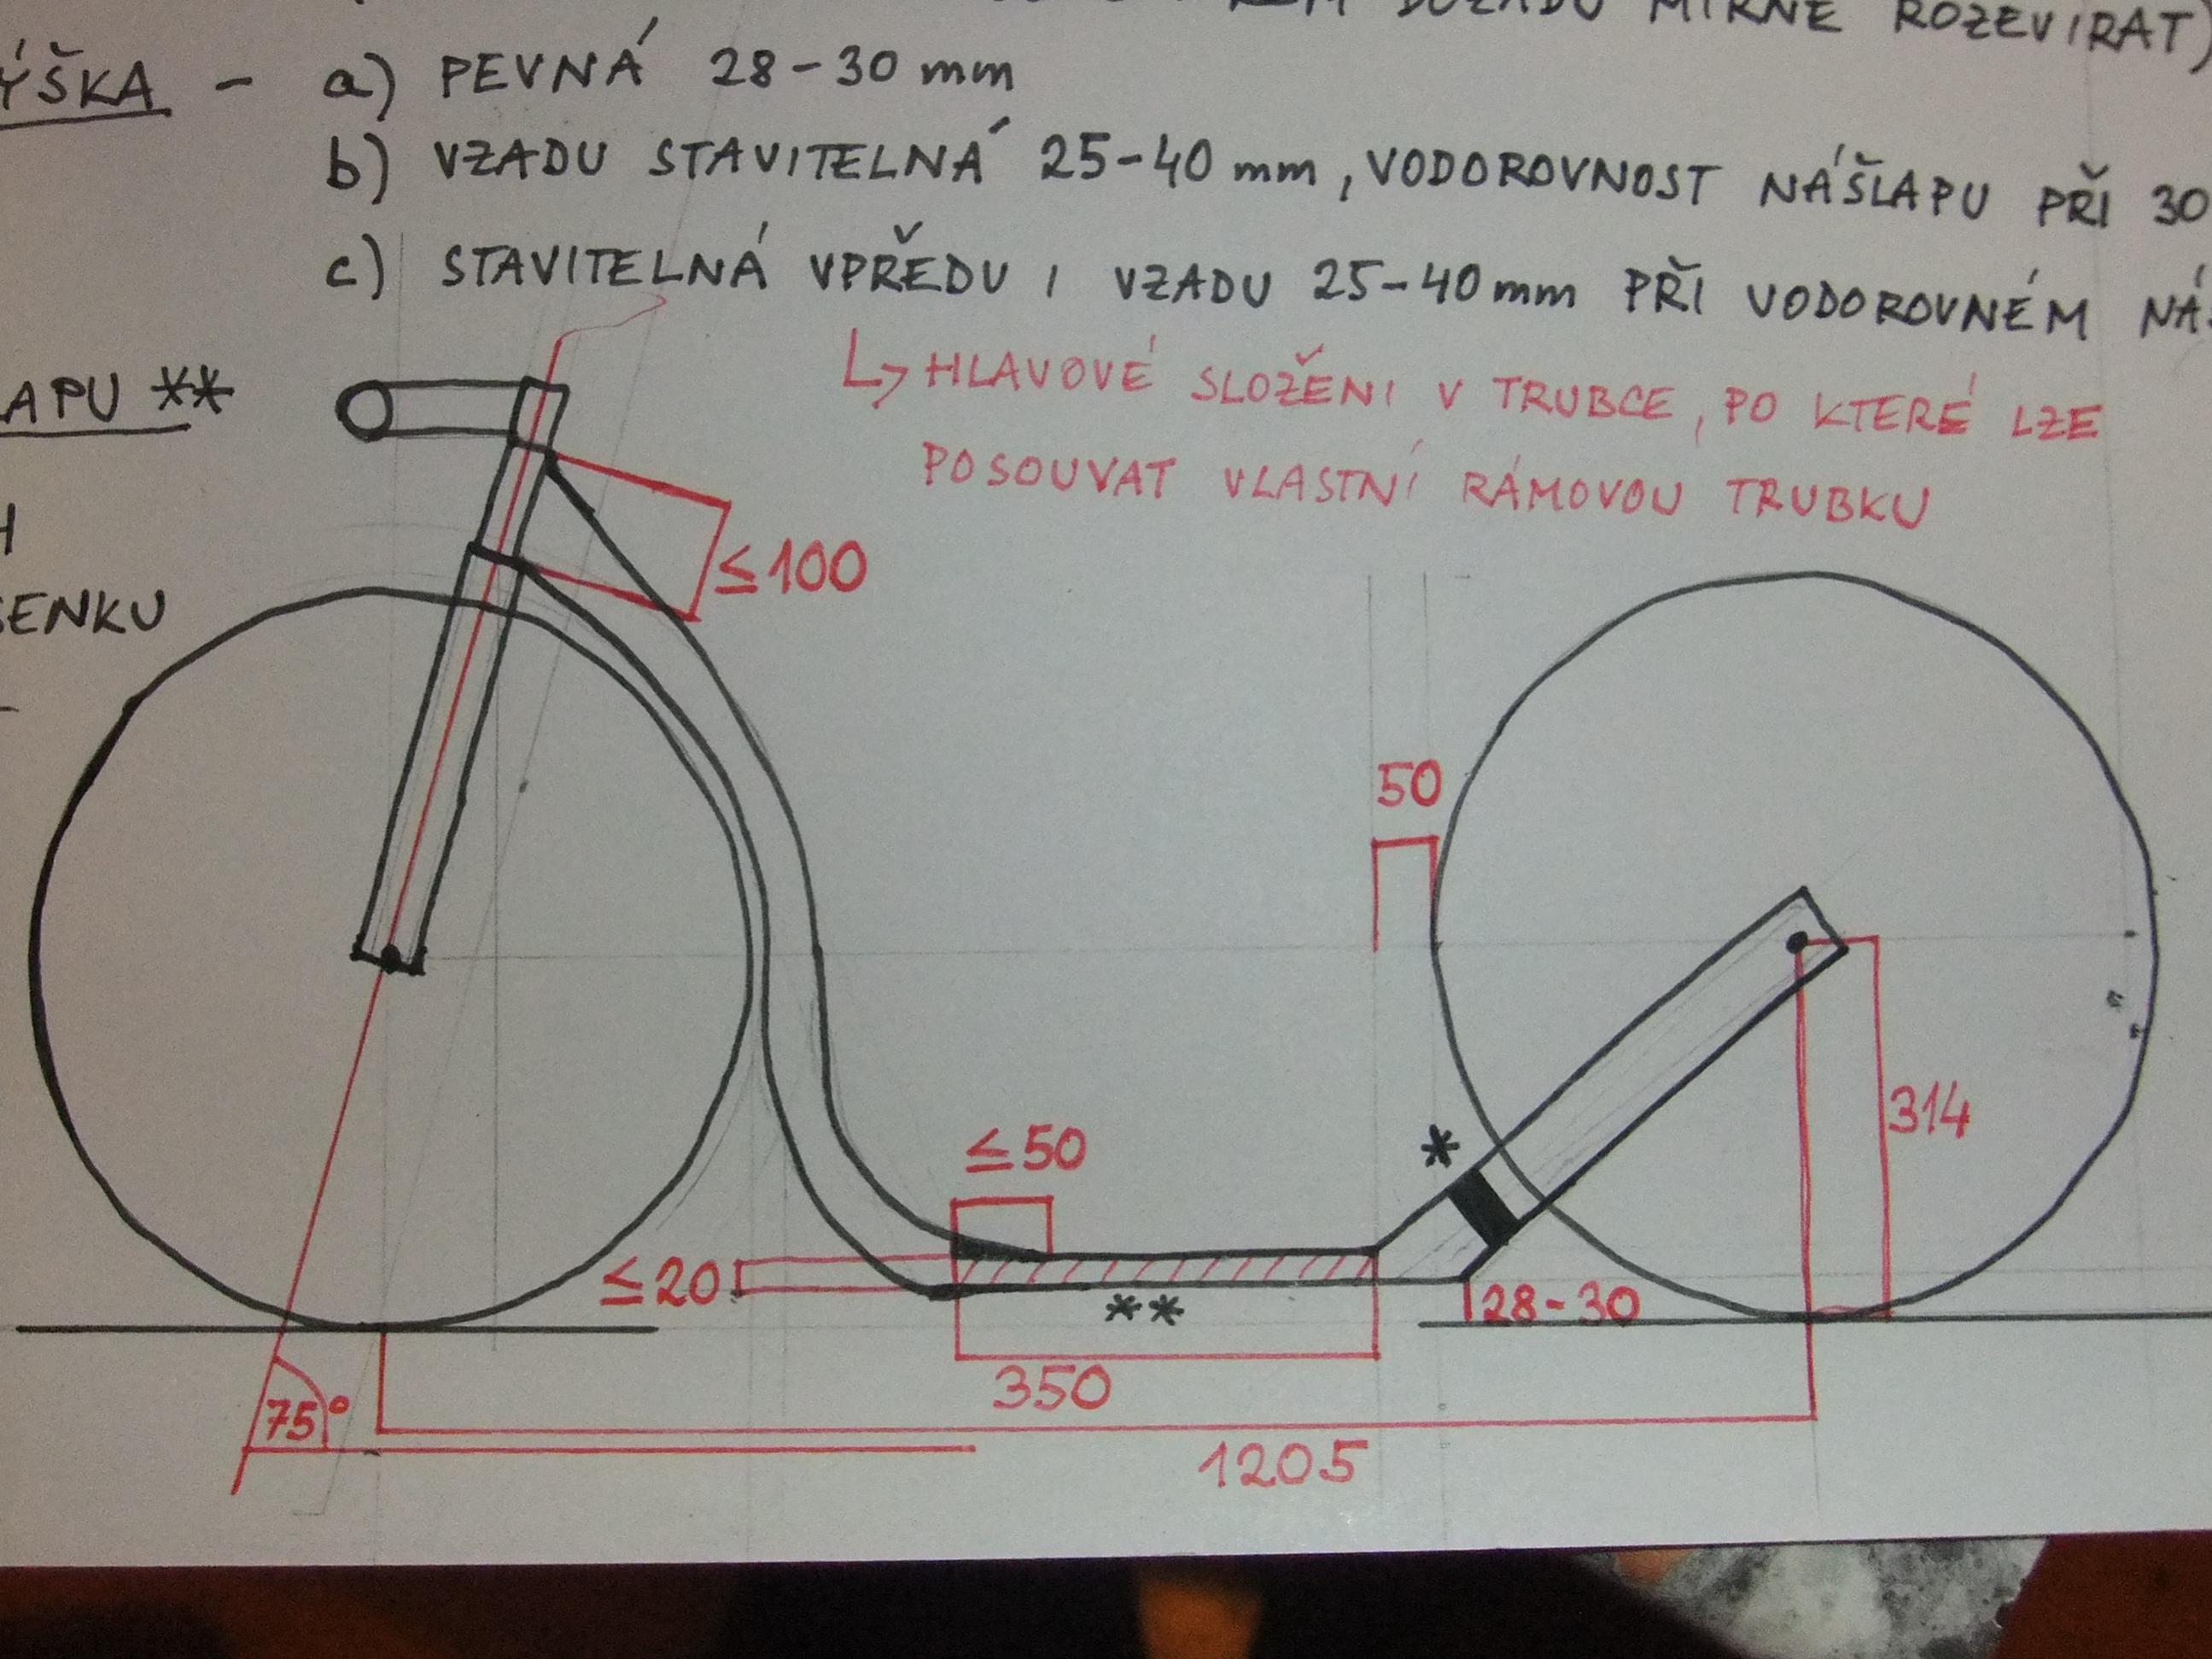 DOZADU MÍRNĚ ROZEVÍRAT)
ÝŠKA - a) PEVNÁ 28-30 mm
b) VZADU STAVITELNÁ 25-40 mm, VODOROVNOST NÁŠLAPU PŘI 30
c) STAVITELNÁ VPŘEDU I VZADU 25-40 mm PŘI VODOROVNÉM NÁ
↳ HLAVOVÉ SLOŽENÍ V TRUBCE, PO KTERÉ LZE
LAPU **
POSOUVAT VLASTNÍ RÁMOVOU TRUBKU
H
≤100
SENKU
50
314
*
≤50
≤20
**
28-30
350
75°
1205